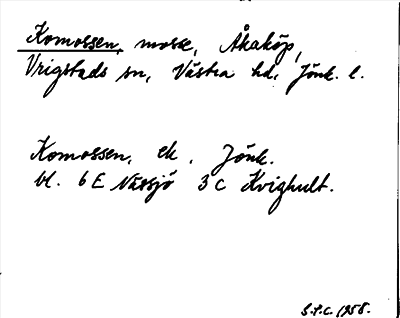 Komossen, mosse, Åkaköp,
Vrigstads sn, Västra hd, Jönk. l.
Komossen, ek. Jönk.
bl. 6 E Nässjö 3 c Kvighult.
1958.